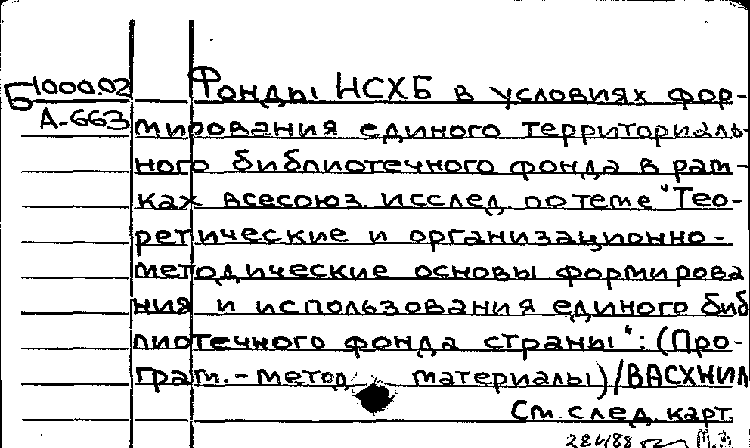 Б1000.02 Фонды НСХБ в условиях фор-
А-663 мирования единого территориаль-
ного библиотечного фонда в рам-
ках всесоюз. исслед. по теме "Тео-
ретические и организационно-
методические основы формирова
ния и использования единого биб
лиотечного фонда страны": (Про-
грам.-метод. материалы)/ВАСХНИЛ
См. след. карт.